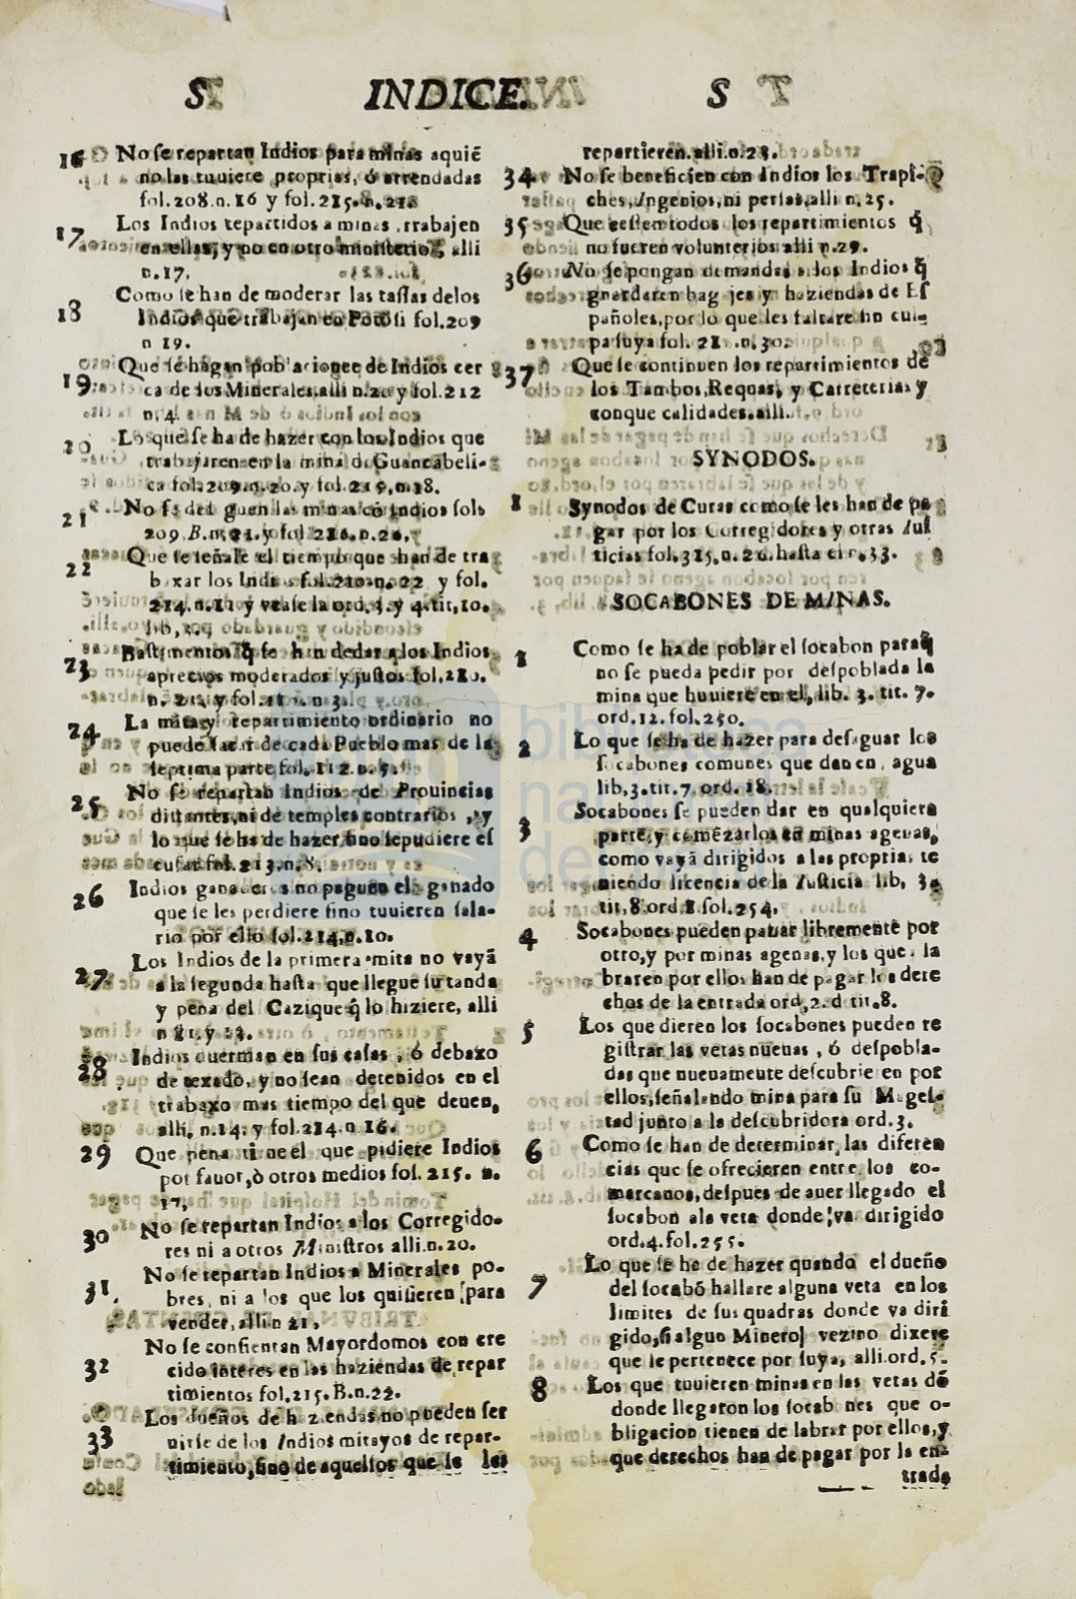 S INDICE. S
16 No se repartan Indios para minas aquiē
no las tuuiere proprias, ó arrendadas
fol. 208. n. 16 y fol. 215. n. 218
17 Los Indios repartidos a minas trabajen
en ellas, y no en otro ministerio, alli
n. 17.
18 Como se han de moderar las tassas delos
Indios que trabajan en Potosi fol. 209
n 19.
19 Que se hagan poblaciones de Indios cer
ca de los Minerales. alli n. 20 y fol. 212
n. 4.
20 Lo que se ha de hazer con los Indios que
trabajaren en la mina de Guancabeli-
ca fol. 209. n. 20. y fol. 219. n. 18.
21 No se des guen las minas cō Indios fols
209. B. n. 21. y fol
22 Que se señale el tiempo que han de tra
baxar los Indios fol. 210. n. 22 y fol.
214. n. 11 y vease la ord. 3. y 4. tit, 10.
lib,
23 Bastimentos q̄ se han dedar a los Indios
a precios moderados y justos fol. 210.
n. y fol. n. 3.
24 La mita y repartimiento ordinario no
puede sacar de cada Pueblo mas de la
septima parte fol. 112. n. 5.
25 No se repartan Indios de Prouincias
distantes, ni de temples contrarios, y
lo que se ha de hazer sino sepudiere es
cusar fol. 213. n. 8.
26 Indios ganaderos no paguen el ganado
que se les perdiere sino tuuieren sala-
rio por ello fol. 214. n. 10.
27. Los Indios de la primera mita no vayā
a la segunda hasta que llegue su tanda
y pena del Cazique q̄ lo hiziere, alli
n y 13.
28 Indios duerman en sus casas, ó debaxo
de texado, y no sean detenidos en el
trabaxo mas tiempo del que deuen,
alli, n. 14. y fol. 214. n 16.
29 Que pena tiene él que pidiere Indios
por fauor, ò otros medios fol. 215. n.
17,
30 No se repartan Indios a los Corregido-
res ni a otros Ministros alli. n. 20.
31. No se repartan Indios a Minerales po-
bres, ni a los que los quisieren para
vender, alli. n 21.
32 No se consientan Mayordomos con cre
cido interes en las haziendas de repar
timientos fol. 215. B. n. 22.
33 Los dueños de haziendas no pueden ser
uirse de los Indios mitayos de repar-
timiento, sino de aquellos que se les
repartieren. alli. n. 23.
34 No se beneficien con Indios los Trapi-
ches, Ingenios, ni perlas, alli n. 25.
35 Que cessen todos los repartimientos q̄
no fueren voluntarios alli n. 29.
36 No se pongan demandas a los Indios q̄
guardaren bagajes y haziendas de Es
pañoles, por lo que les faltare sin cul-
pa suya fol. n. 30.
37 Que se continuen los repartimientos de
los Tambos, Requas, y Carreterias y
conque calidades. alli.
SYNODOS.
1 Synodos de Curas como se les han de pa
gar por los Corregidores y otras Jus
ticias fol. 315. n. 26. hasta el n. 33.
SOCABONES DE MINAS.
1 Como se ha de poblar el socabon paraq̄
no se pueda pedir por despoblada la
mina que huuiere en el, lib. 3. tit. 7.
ord. 12. fol. 250.
2 Lo que se ha de hazer para desaguar los
socabones comunes que dan en agua
lib, 3. tit. 7. ord. 18.
3 Socabones se pueden dar en qualquiera
parte, y comēzarlos en minas agenas,
como vayā dirigidos a las proprias te
niendo licencia de la Justicia lib, 3.
tit, 8. ord. 1. fol. 254.
4 Socabones pueden passar libremente por
otro, y por minas agenas, y los que la
braren por ellos han de pagar los dere
chos de la entrada ord, 2. d tit. 8.
5 Los que dieren los socabones pueden re
gistrar las vetas nueuas, ó despobla-
das que nueuamente descubrie en por
ellos, señalando mina para su Mages-
tad junto a la descubridora ord. 3.
6 Como se han de determinar las diferen
cias que se ofrecieren entre los co-
marcanos, despues de auer llegado el
socabon ala veta donde va dirigido
ord. 4. fol. 255.
7 Lo que se ha de hazer quando el dueño
del socabō hallare alguna veta en los
limites de sus quadras donde va diri
gido, si alguo Minero vezino dixere
que le pertenece por suya, alli. ord. 5.
8 Los que tuuieren minas en las vetas dō
donde llegaron los socabones que o-
bligacion tienen de labrar por ellos, y
que derechos han de pagar por la en-
trada